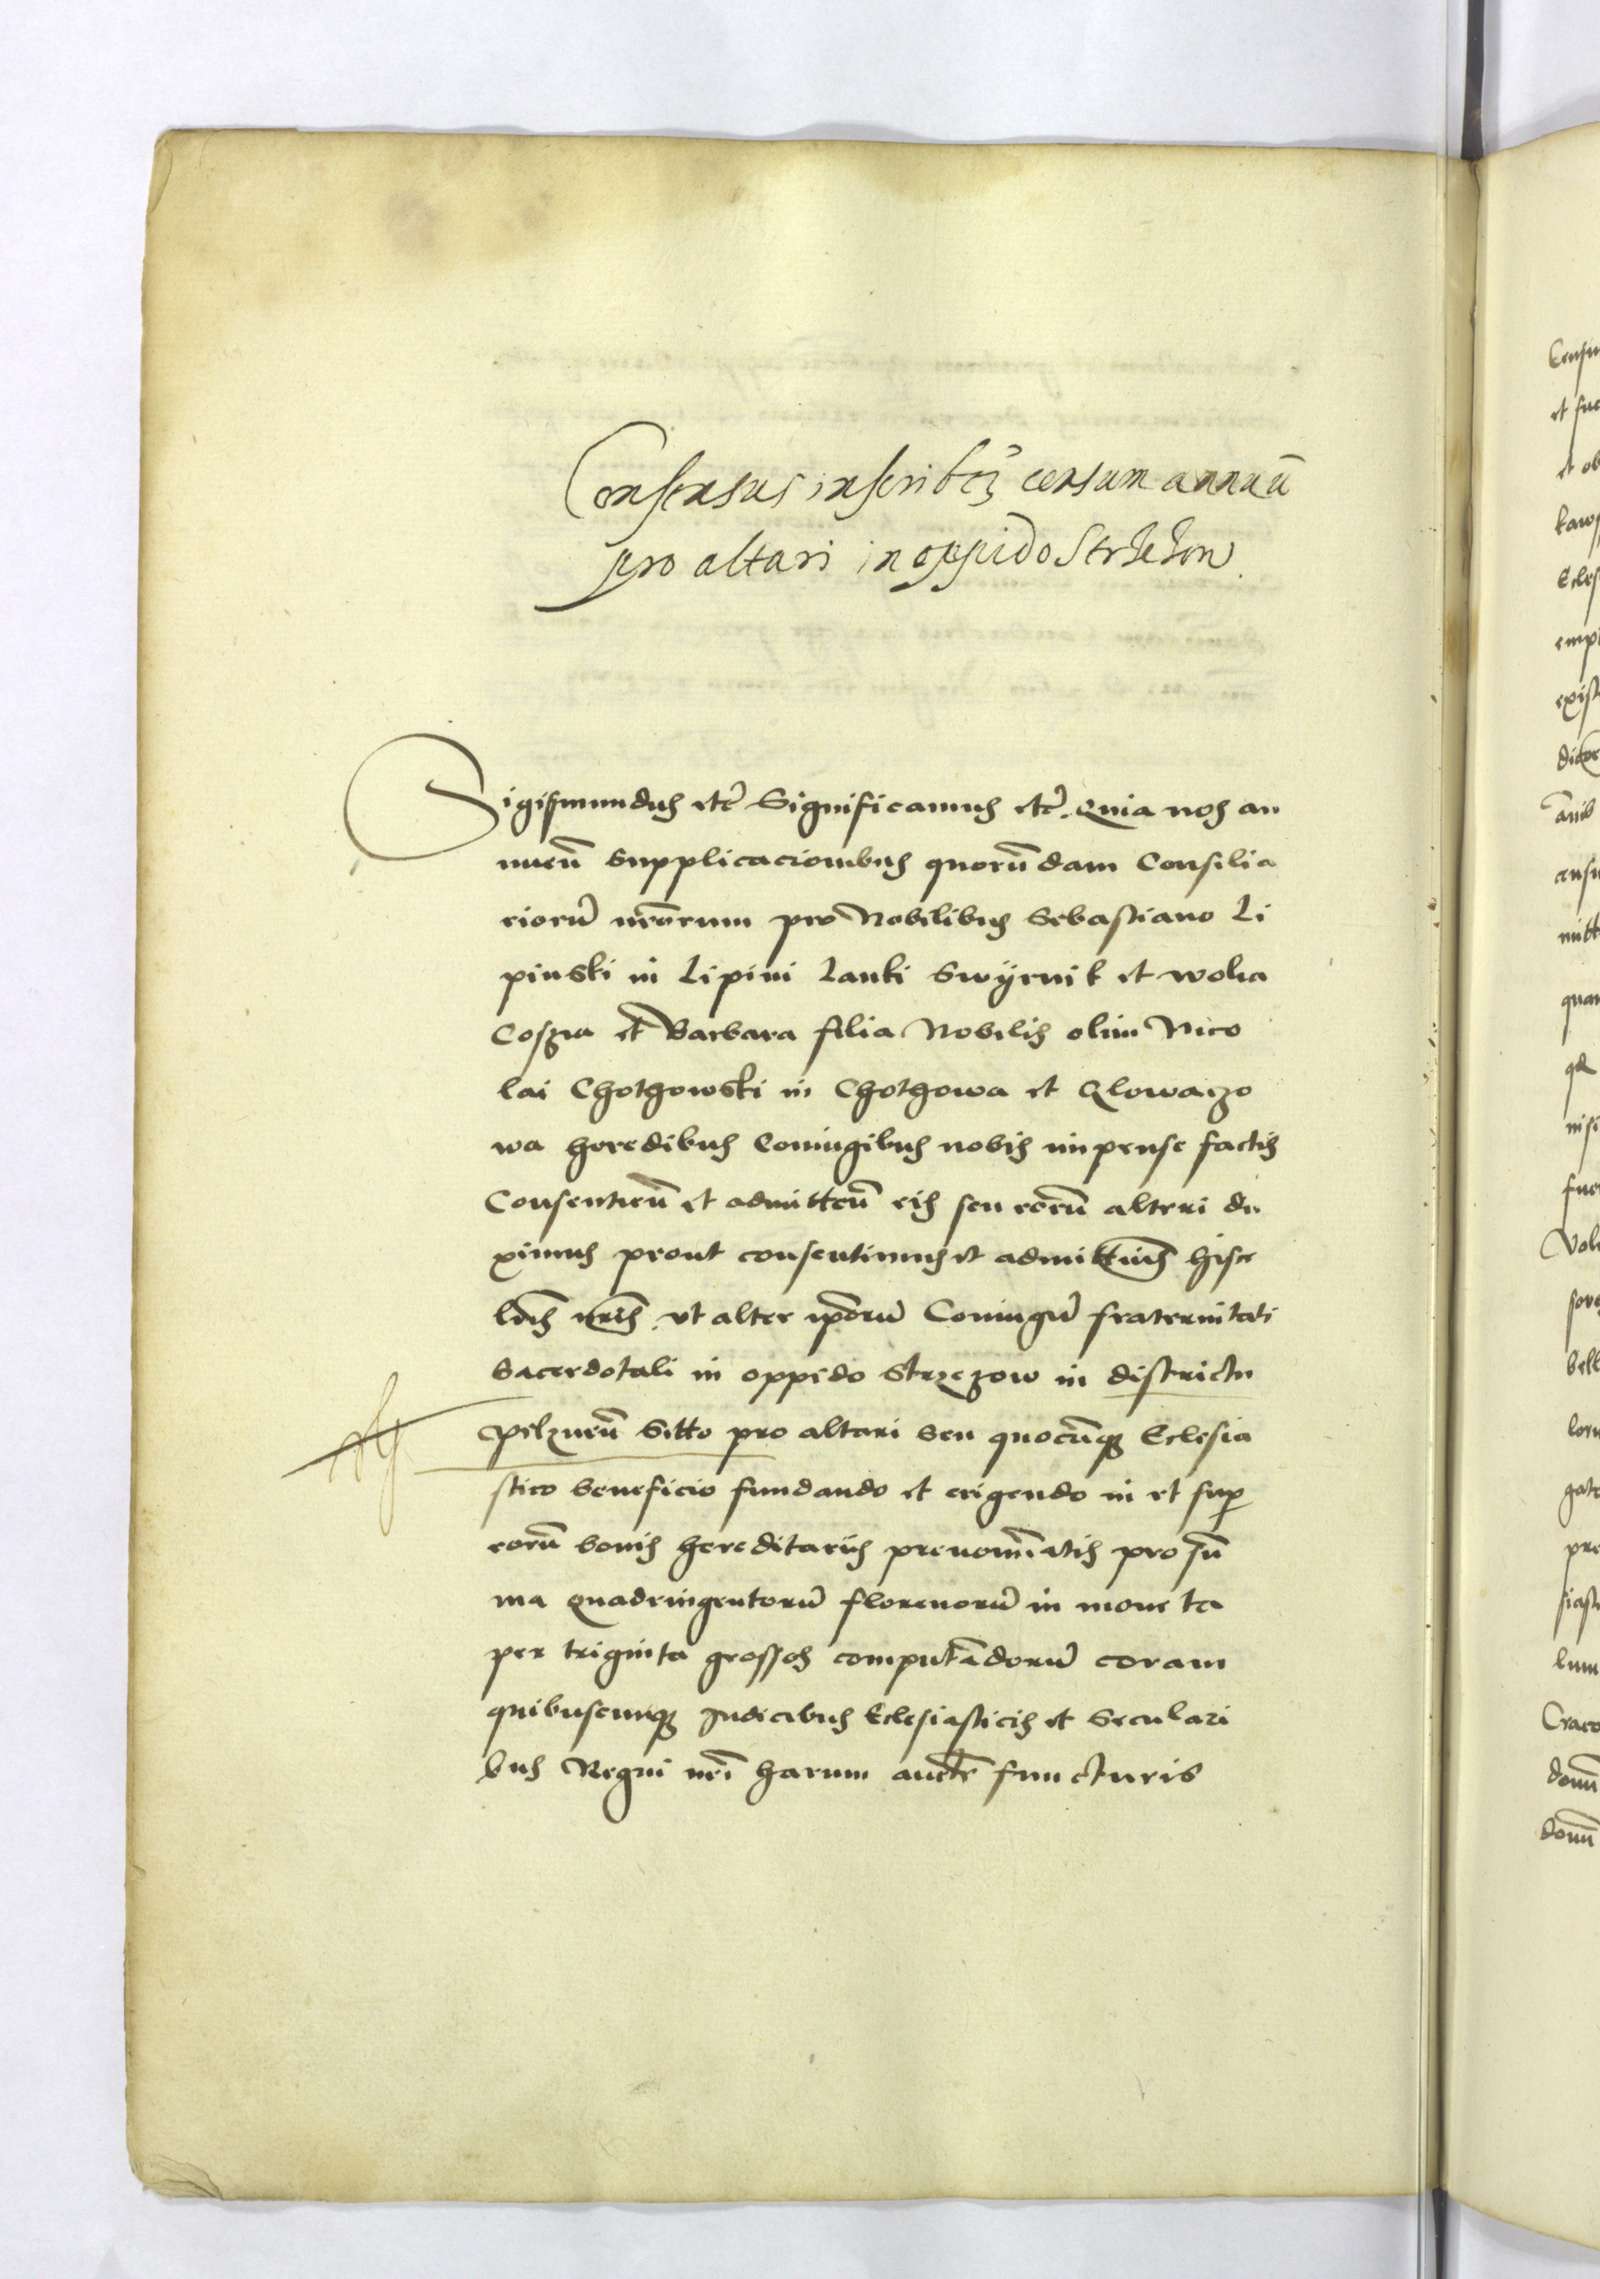 Consensus inscribẽ censum annuũ
pro altari in oppido Strzezow
Sigismundus etc̃ Significamus etc̃. Quia nos an
nueñ supplicacionibus quorũdam Consilia
riorũ nr̃orum pro Nobilibus Sebastiano Li
pinski in Lipini Lanki Swyrnik et wolia
Coszia et Barbara filia Nobilis olim Nico
lai Chothowski in Chothowa et Glowaczo
wa heredibus Coniugibus nobis impense factis
Consentieñ et admitteñ eis seu eorũ alteri du
ximus prout consentimus et admittim̃s hisce
lr̃is nr̃is. vt alter ip̃orũ Coniugũ fraternitati
sacerdotali in oppido Strzezow in districtu
pilzneñ sitto pro altari seu quocũq3 Eclesia
stico beneficio fundando et erigendo in et sup
eorũ bonis hereditariis prenomĩatis pro sũ
ma quadringentorũ florenorũ in moneta
per triginta grossos computãdorũ coram
quibuscunq3 Iudicibus Eclesiasticis et Seculari
bus Regni nr̃i harum auctẽ functuris
Censu
et fue
et ob
kaws
Eclesi
empt
exist
dictor
ãnib
censu
mitt
quam
qd
nisi
fuer
Volu
bell
gate
pre
siast
lum
Craco
domũ
domũ